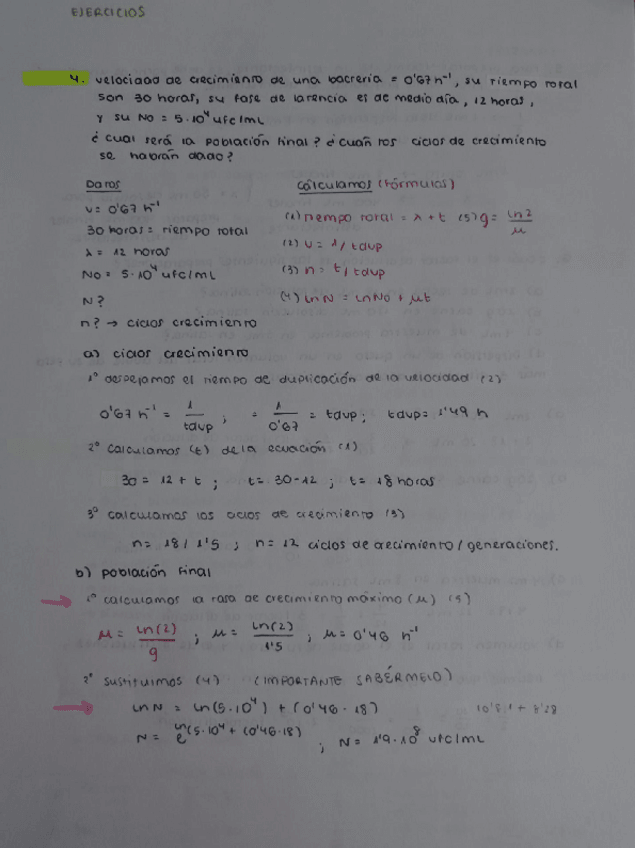 EJERCICIOS
4. velocidad de crecimiento de una bacteria = 0'67 h⁻¹, su tiempo total
son 30 horas, su fase de latencia es de medio día, 12 horas,
y su No = 5·10⁴ ufc/mL
¿cual será la población final? ¿cuántos ciclos de crecimiento
se habrán dado?
Datos
v = 0'67 h⁻¹
30 horas = tiempo total
λ = 12 horas
No = 5·10⁴ ufc/mL
N?
n? → ciclos crecimiento
Calculamos (Fórmulas)
(1) Tiempo total = λ + t (5) g = ln2/μ
(2) v = 1/tdup
(3) n = t/tdup
(4) ln N = ln No + μt
a) ciclos crecimiento
1º despejamos el tiempo de duplicación de la velocidad (2)
0'67 h⁻¹ = 1/tdup ; = 1/0'67 = tdup ; tdup = 1'49 h
2º calculamos (t) de la ecuación (1)
30 = 12 + t ; t = 30-12 ; t = 18 horas
3º calculamos los ciclos de crecimiento (3)
n = 18/1'5 ; n = 12 ciclos de crecimiento/generaciones.
b) población final
1º calculamos la tasa de crecimiento máximo (μ) (5)
μ = ln(2)/g ; μ = ln(2)/1'5 ; μ = 0'46 h⁻¹
2º sustituimos (4) (IMPORTANTE SABÉRMELO)
ln N = ln(5·10⁴) + (0'46·18)
N = e^ln(5·10⁴ + (0'46·18) ; N = 1'9·10⁸ ufc/mL